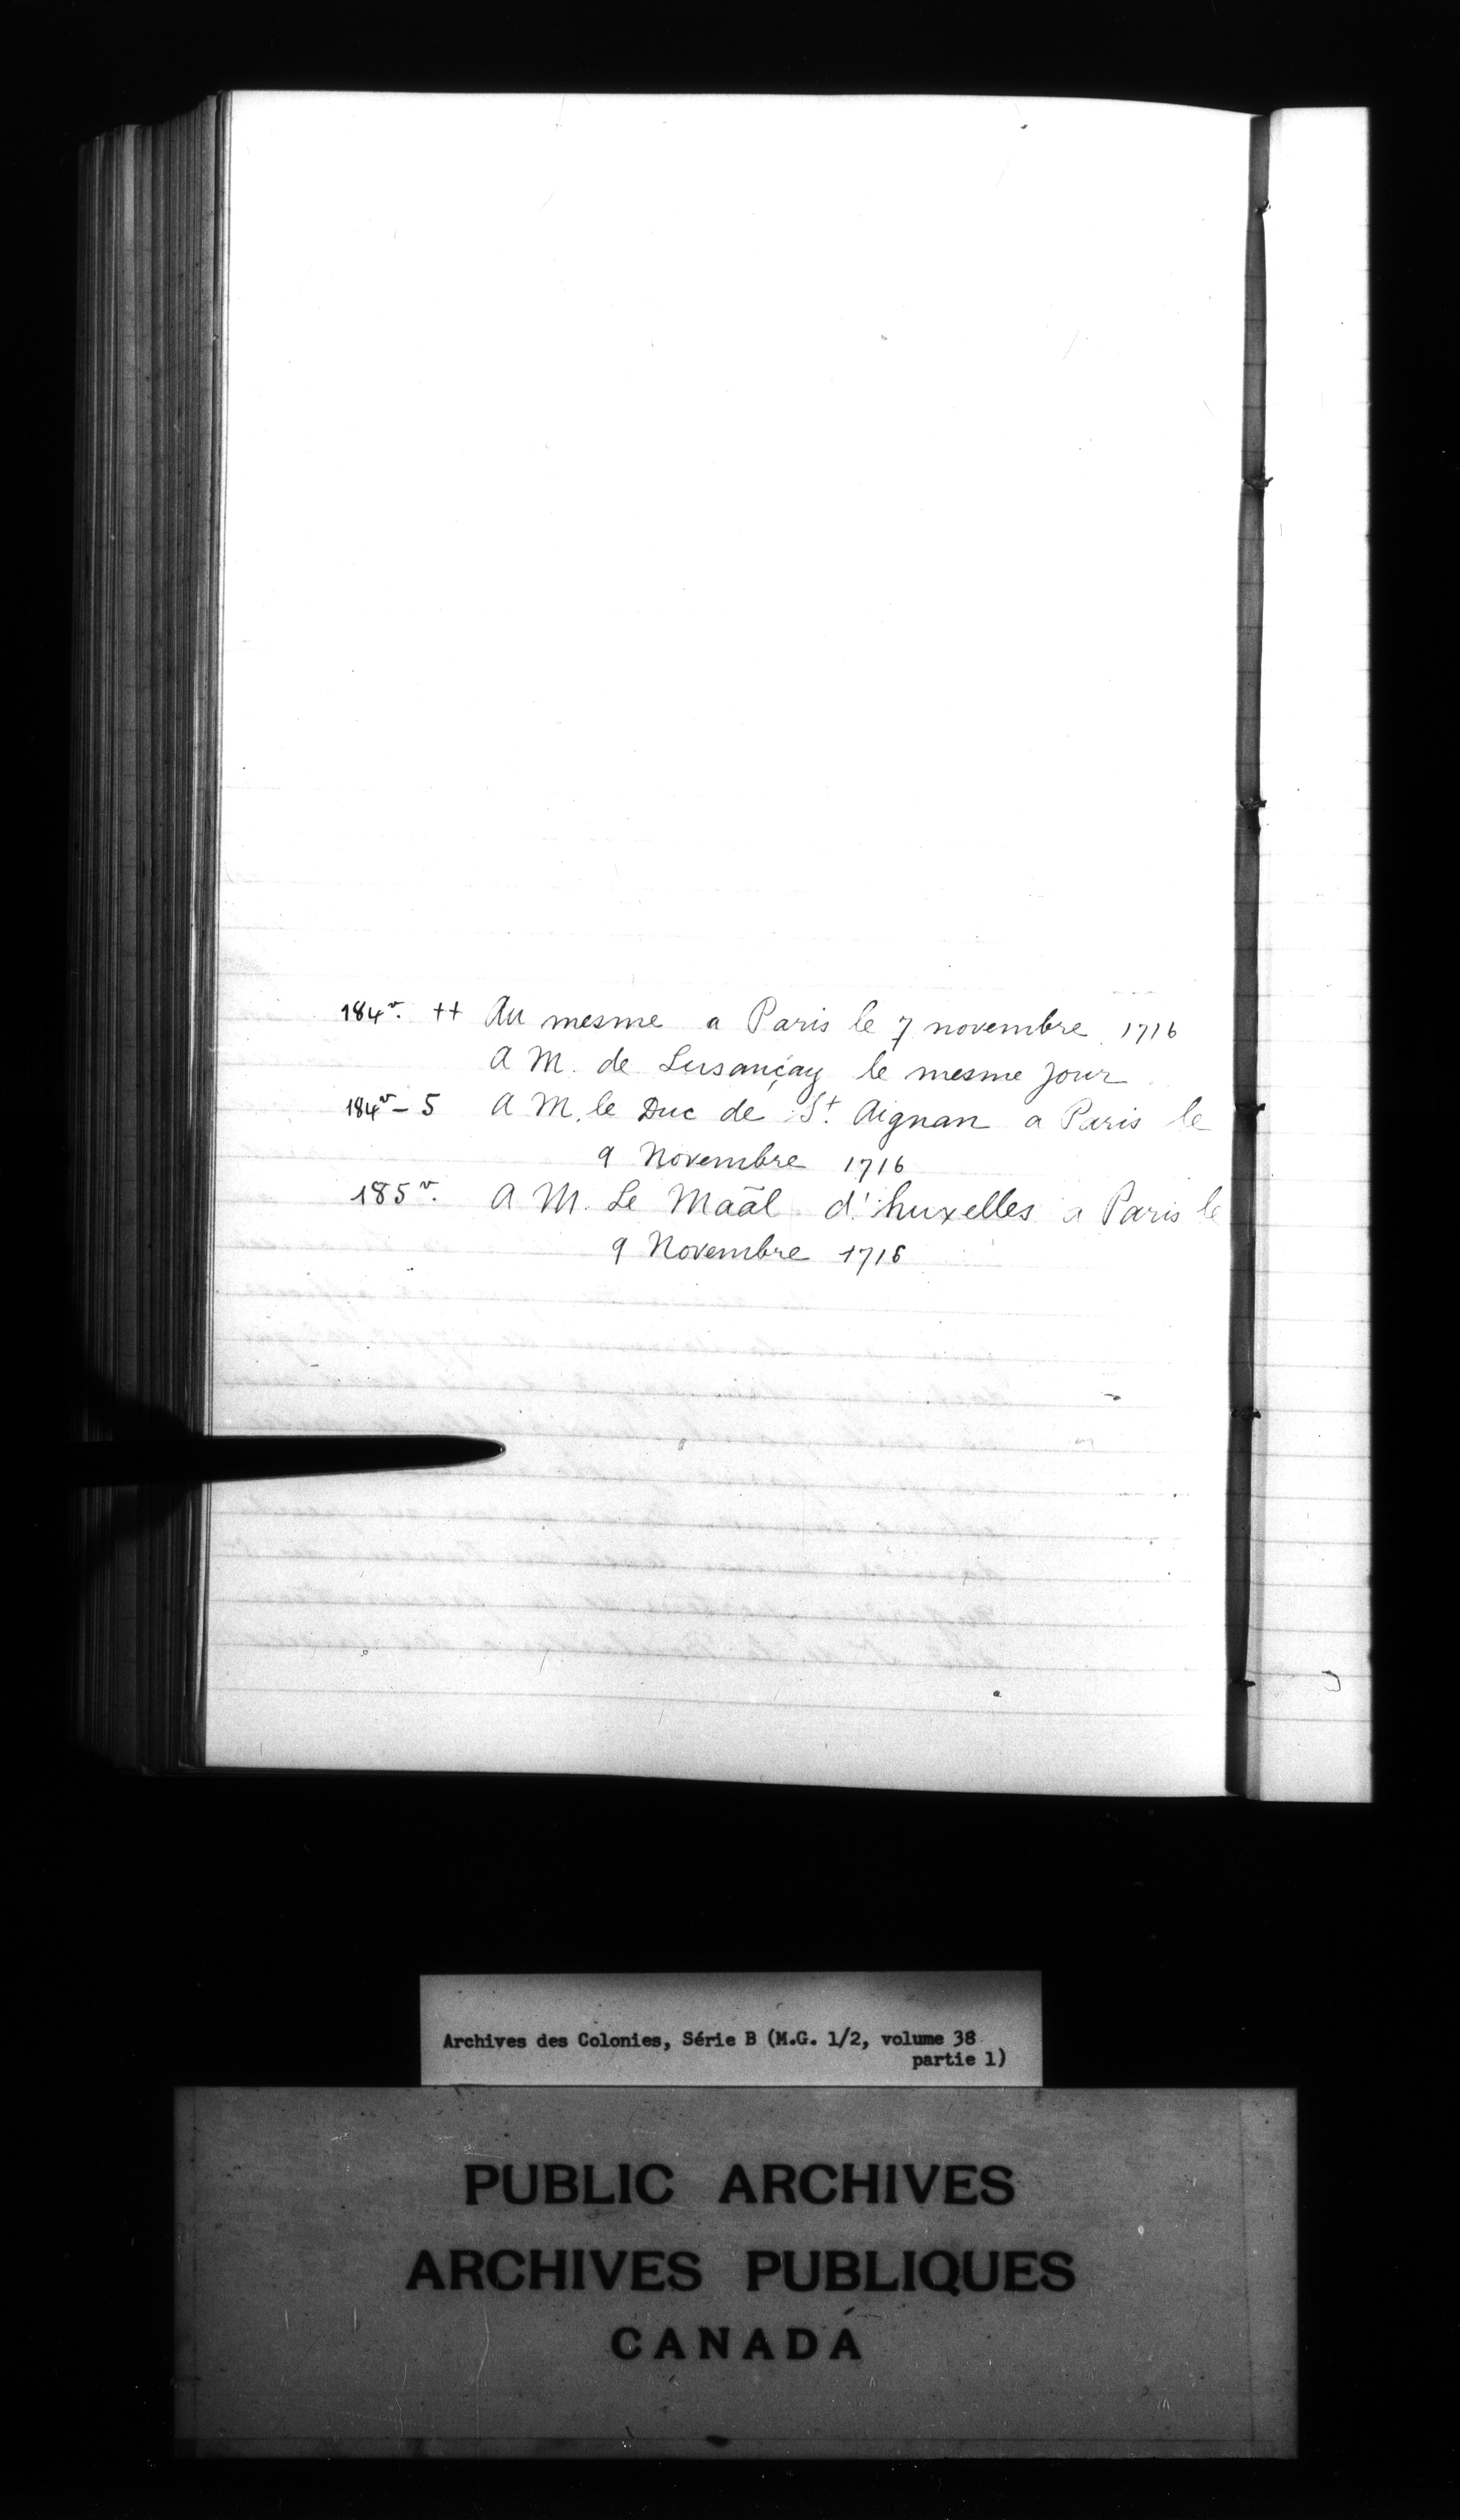 184v. ++ Au mesme a Paris le 7 novembre 1716
A M. de Lusançay le mesme jour
184v – 5 A M. le Duc de St. Aignan a Paris le
9 Novembre 1716
185v. A M. Le Maãl d'huxelles a Paris le
9 Novembre 1716
Archives des Colonies, Série B (M.G. 1/2, volume 38
partie 1)
PUBLIC ARCHIVES
ARCHIVES PUBLIQUES
CANADA